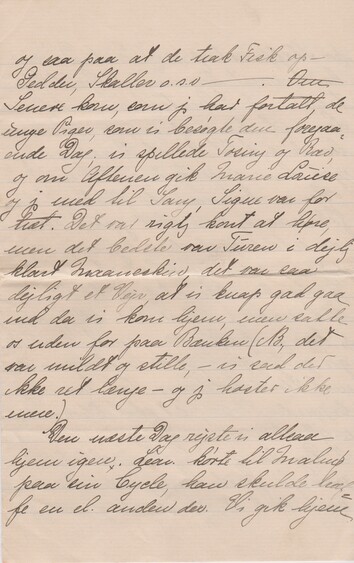 og saa paa at de trak Fisk op-
Gedder, Skaller o.s.v. Om
Senere kom, som jeg har fortalt, de
unge Piger, som vi besøgte den foregaa-
ende Dag, vi spillede og
og om Aftenen gik Marie Louise
og j med til Sang, Signe var for
træt. Det var rigtig kønt at høre,
men det bedste var Turen i dejlig
klart Maaneskin, det var saa
dejligt et Vejr, at vi knap gad gaa
ind da vi kom hjem, men satte
os uden for paa Bænken (NB, det
var mildt og stille, - vi sad der
ikke ret længe - og j hoster ikke
mere.)
Den næste Dag rejste vi altsaa
hjem igen. kørte til
paa sin Cycle, han skulde
fe en el. anden der. Vi gik hjem